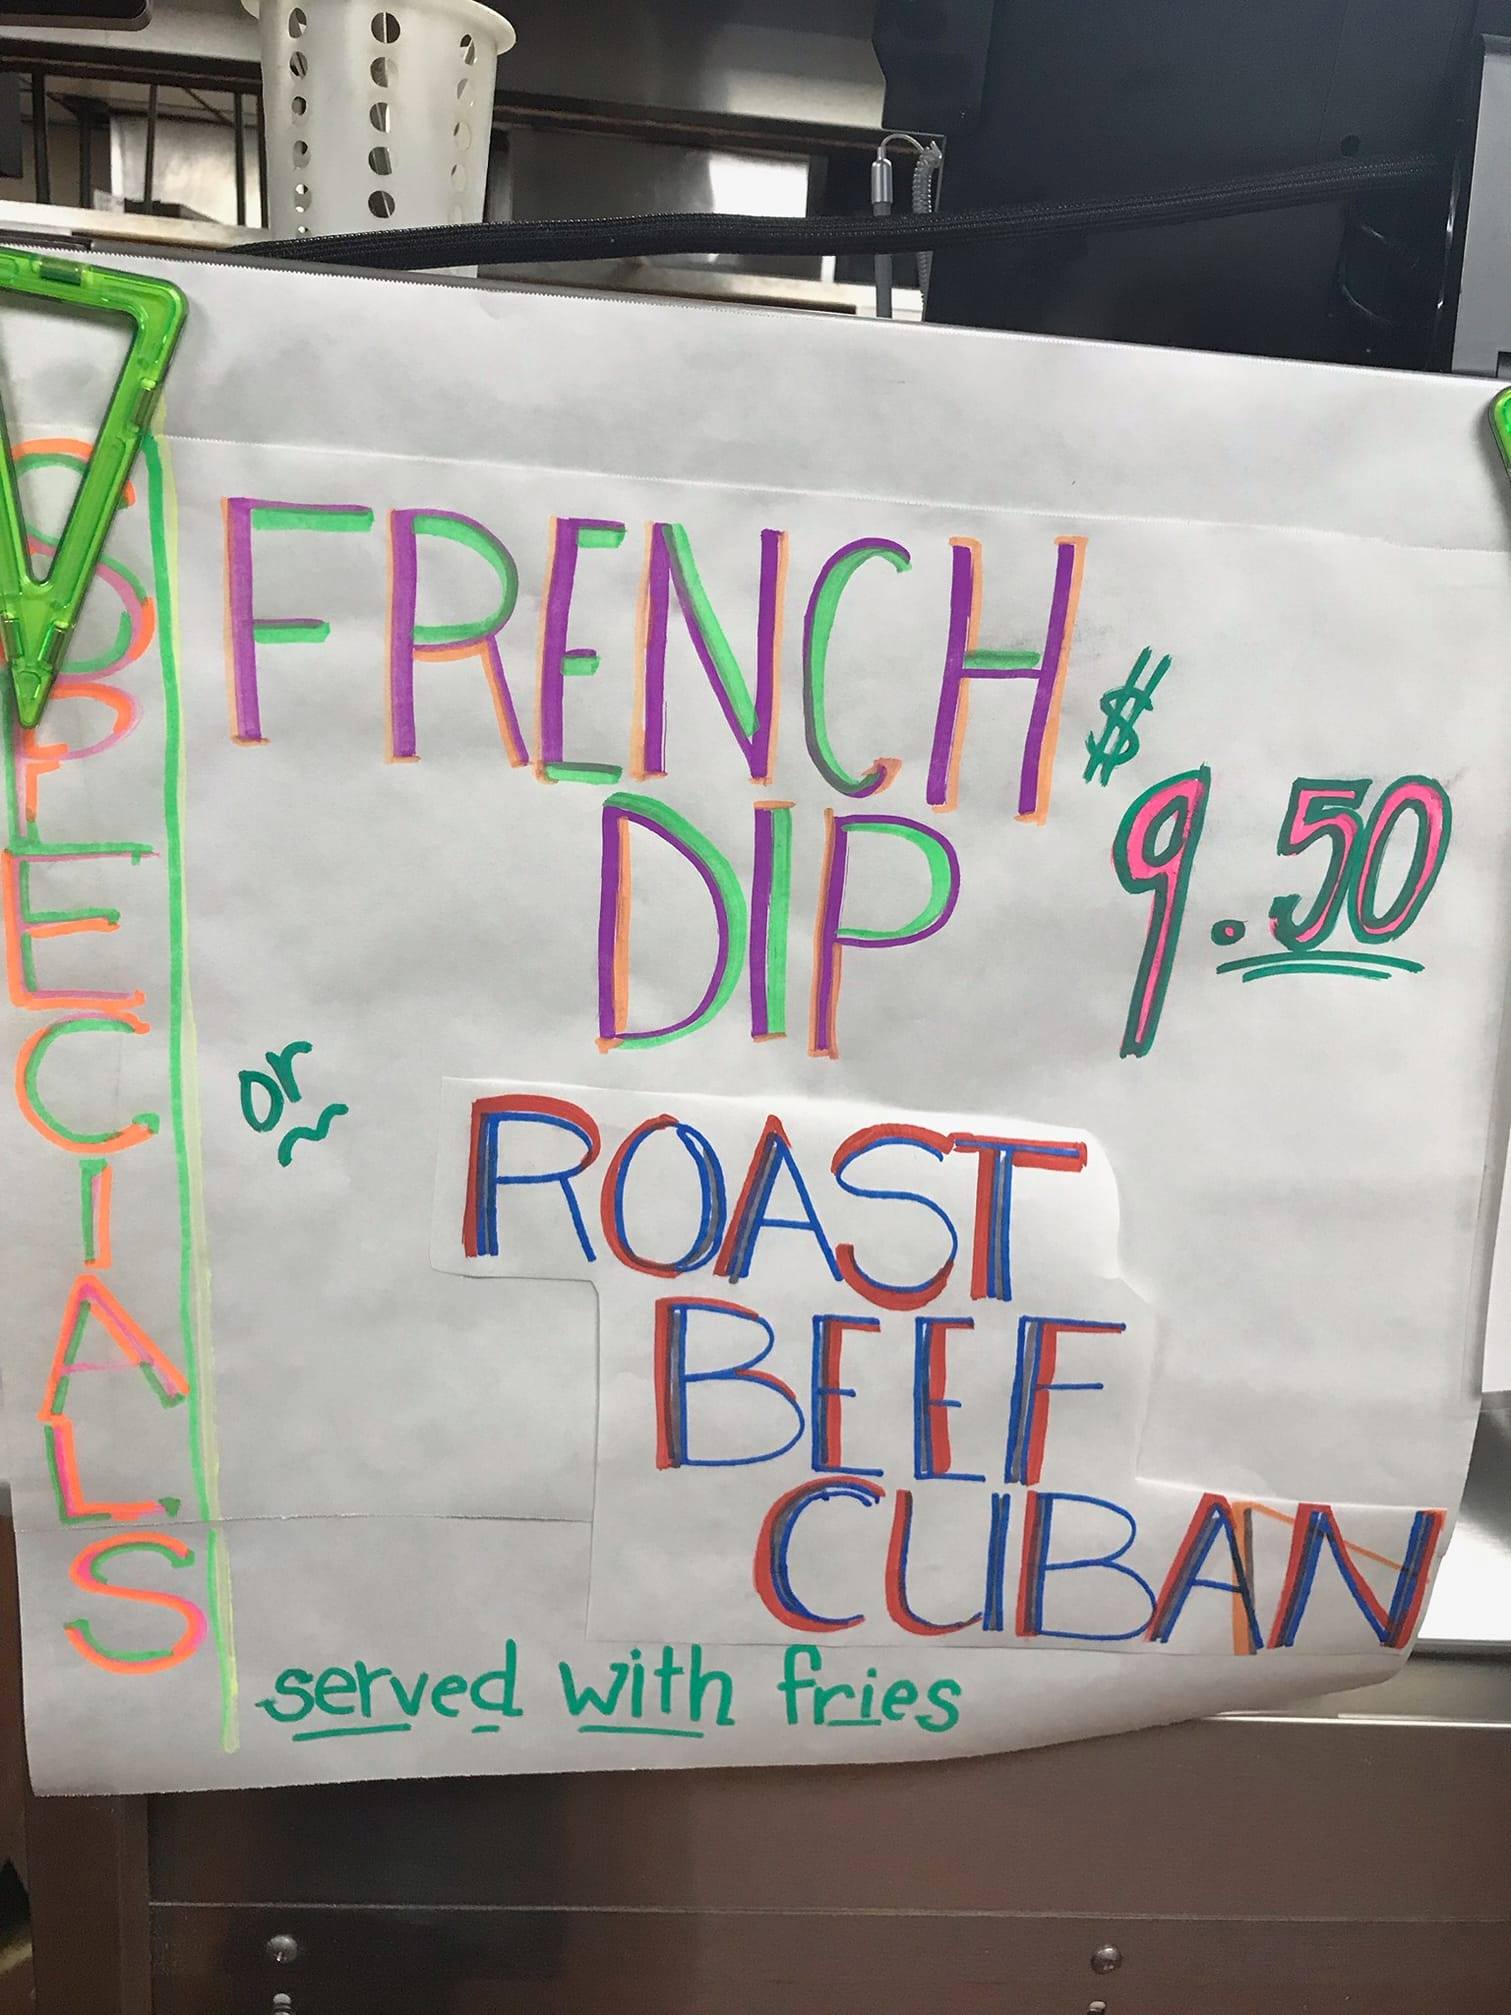 SPECIALS
FRENCH
DIP
$9.50
or
ROAST
BEEF
CUBAN
served with fries